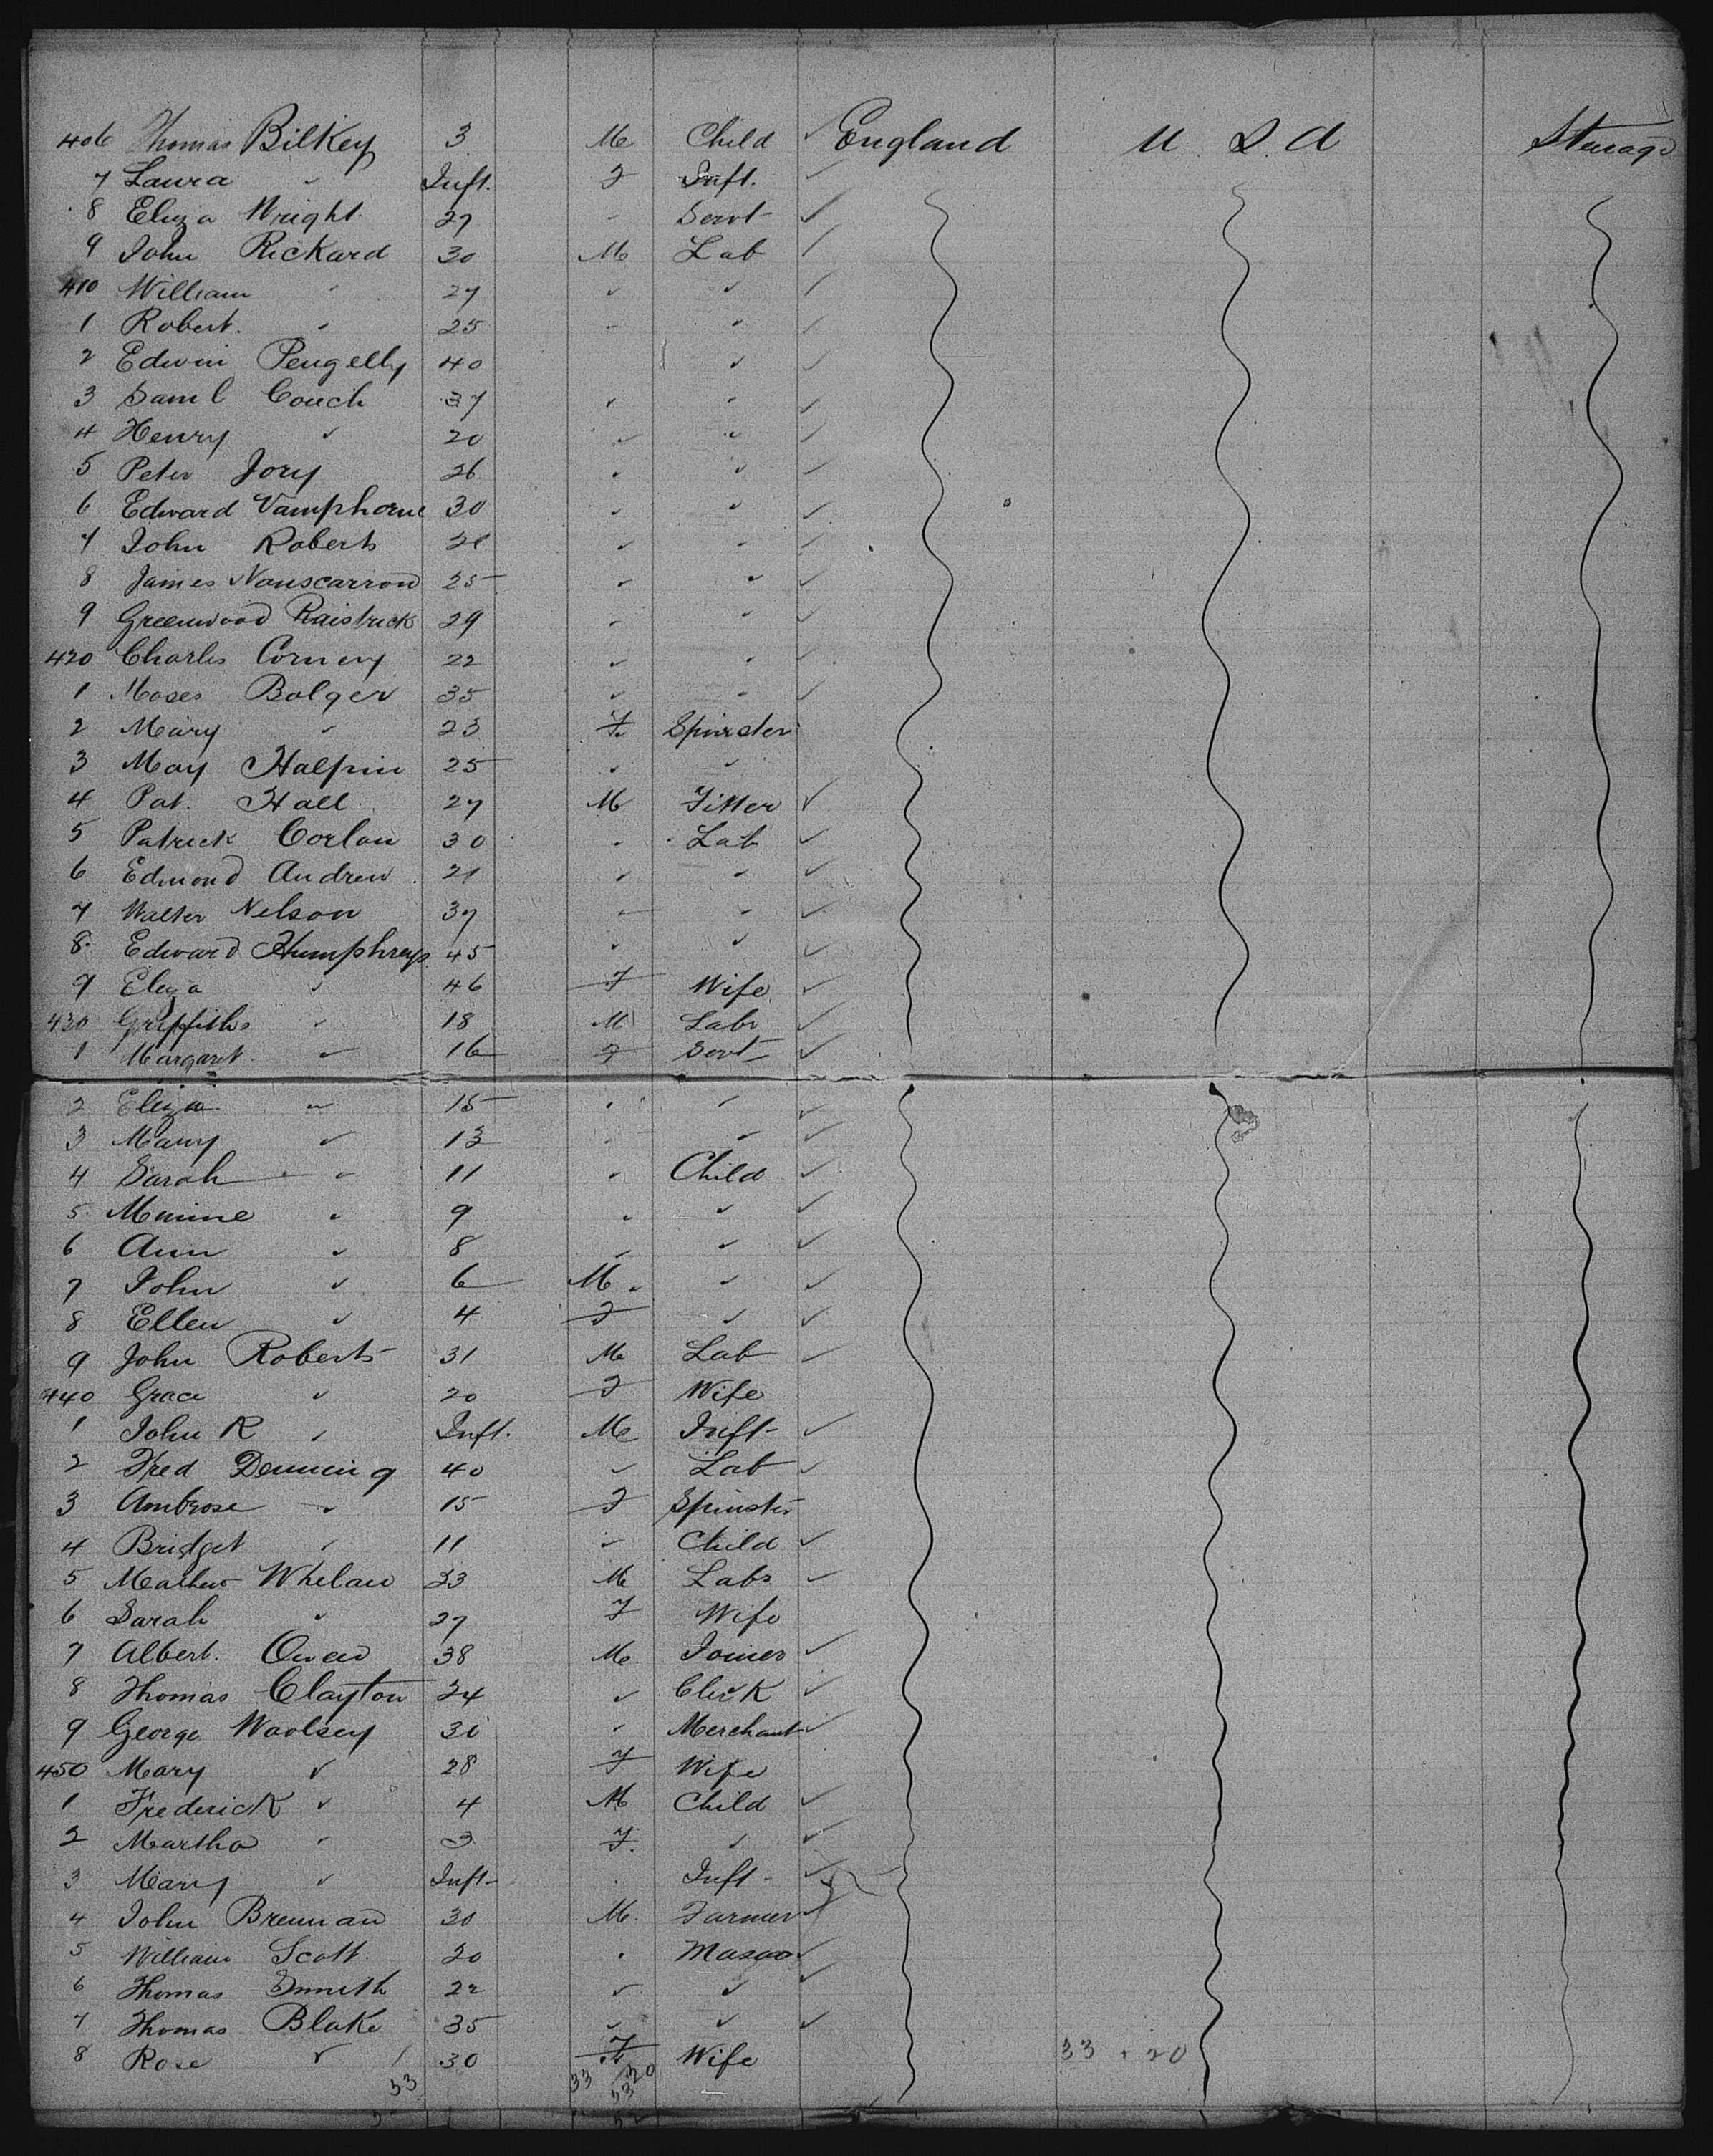 406 Thomas Bilkey 3 M Child ✓ England U.S.A Steerage
7 Laura ✓ Inft. F Inft. ✓
8 Eliza Wright 27 " Servt ✓
9 John Rickard 30 M Lab ✓
410 William " 27 ✓ ✓ ✓
1 Robert. " 25 " " ✓
2 Edwin Pengelly 40 ✓ ✓
3 Saml Couch 37 ✓ " ✓
4 Henry ✓ 20 ✓ " ✓
5 Peter Jory 26 " ✓ ✓
6 Edward Vamphorne 30 " " ✓
7 John Roberts ✓ " ✓
8 James Nanscarrow 25 ✓ ✓ ✓
9 Greenwood Raistrick 29 " " ✓
420 Charles Corney 22 ✓ " ✓
1 Moses Bolger 35 ✓ " ✓
2 Mary " 23 F Spinster
3 May Halpin 25 ✓ ✓
4 Pat. Hall 27 M Fitter ✓
5 Patrick Corlan 30 " Lab ✓
6 Edmond Andrew 21 ✓ " ✓
7 Walter Nelson 37 " " ✓
8 Edward Humphreys 45 ✓ ✓ ✓
9 Eliza ✓ 46 F Wife ✓
430 Griffiths ✓ 18 M Labr ✓
1 Margaret ✓ 16 F Servt ✓
2 Eliza " 15 " ✓ ✓
3 Mary ✓ 13 " ✓ ✓
4 Sarah ✓ 11 " Child ✓
5 Minnie ✓ 9 " ✓ ✓
6 Ann ✓ 8 " ✓ ✓
7 John ✓ 6 M ✓ ✓
8 Ellen ✓ 4 F ✓ ✓
9 John Roberts 31 M Lab ✓
440 Grace ✓ 20 F Wife
1 John R " Inft. M Inft ✓
2 Fred Denning 40 ✓ Lab ✓
3 Ambrose ✓ 15 F Spinster
4 Bridget " 11 " Child ✓
5 Mathew Whelan 33 M Labr ✓
6 Sarah " 27 F Wife
7 Albert. Owen 38 M Joiner ✓
8 Thomas Clayton 24 ✓ Clerk ✓
9 George Woolsey 30 " Merchant ✓
450 Mary ✓ 28 F Wife
1 Frederick ✓ 4 M Child ✓
2 Martha " 3 F. ✓ ✓
3 Mary ✓ Inft " Inft ✓
4 John Brennan 30 M. Farmer ✓
5 William Scott 20 " Mason ✓
6 Thomas Smith 22 ✓ ✓ ✓
7 Thomas Blake 35 ✓ ✓ ✓
8 Rose ✓ 30 F Wife 33 . 20
53 33 20
53